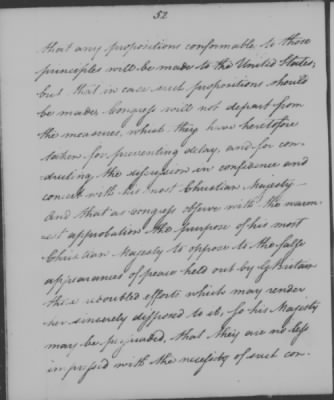 52
that any propositions conformable to those
principles will be made to the United States;
but that in case such propositions should
be made, Congress will not depart from
the measures, which they have heretofore
taken for preventing delay, and for con-
ducting the discussion in confidence and
concert with his most Christian Majesty—
And that as Congress observe with the warm-
est approbation the purpose of his most
Christian Majesty to oppose to the false
appearances of peace held out by G Britain
those redoubled efforts which may render
her sincerely disposed to it, so his Majesty
may be persuaded, that they are no less
impressed with the necessity of such con-